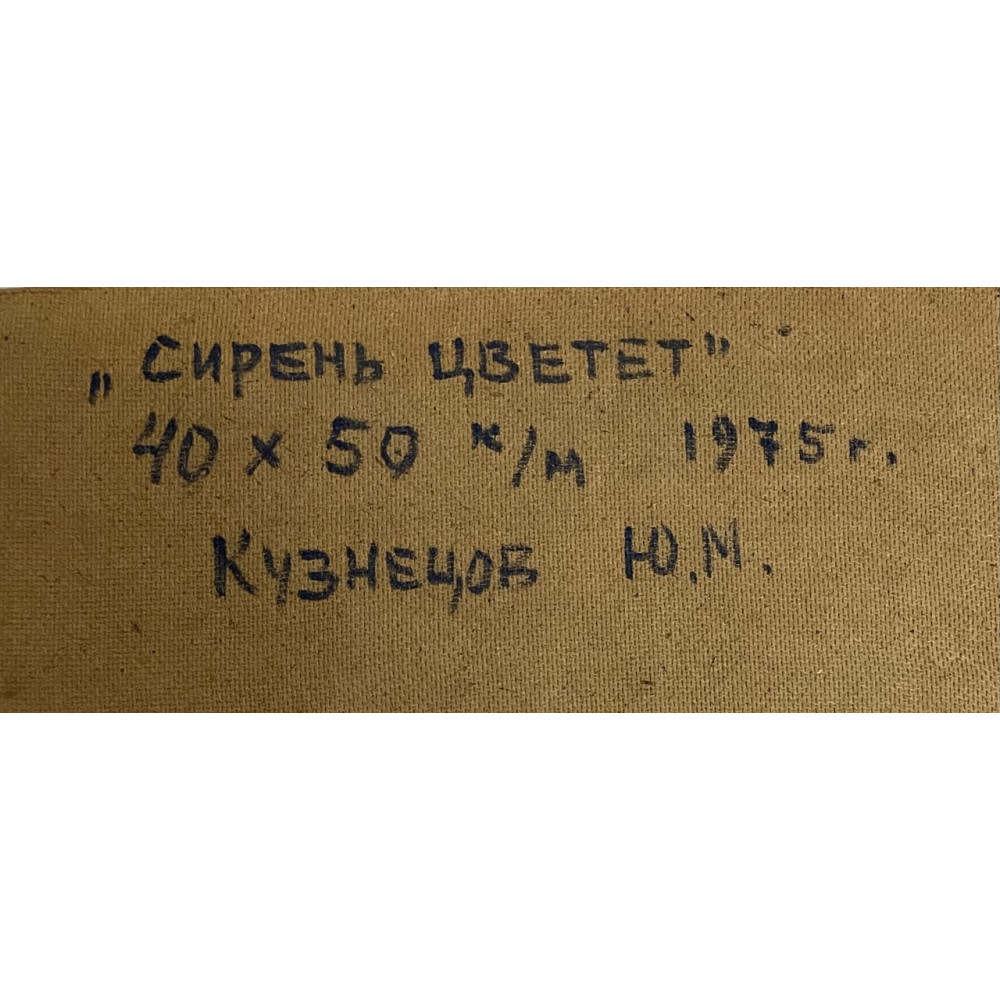 „СИРЕНЬ ЦВЕТЕТ"
40 х 50 к/м 1975 г.
КУЗНЕЦОВ Ю.М.